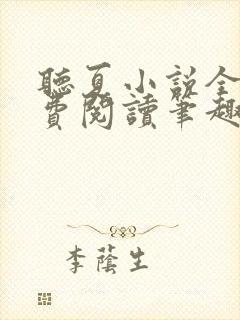 聽夏小說全
費閱讀筆趣
李蔭生